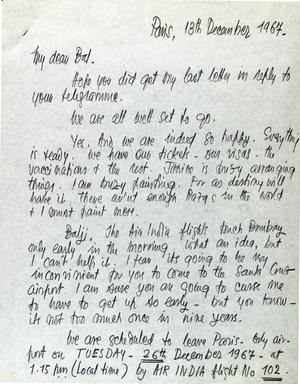 Paris, 13th December 1967.
My dear Bal.
Hope you did get my last letter in reply to
your telegramme.
We are all well set to go.
Yes. And we are indeed so happy. Everything
is ready. We have our tickets - our visas - the
vaccinations & the rest. Janine is busy arranging
things. I am busy painting. For as destiny will
have it. There aren't enough Razas in the world
& I must paint more.
Balji. The Air India flights touch Bombay
only early in the morning. What an idea, but
I can't help it. I fear its going to be very
inconvinient for you to come to the Santa Cruz
airport. I am sure you are going to curse me
to have to get up so early - but you know
its not too much once in nine years.
We are scheduled to leave Paris - Orly air-
port on TUESDAY - 26th December 1967 - at
1.15 pm (local time) by AIR INDIA flight No 102.